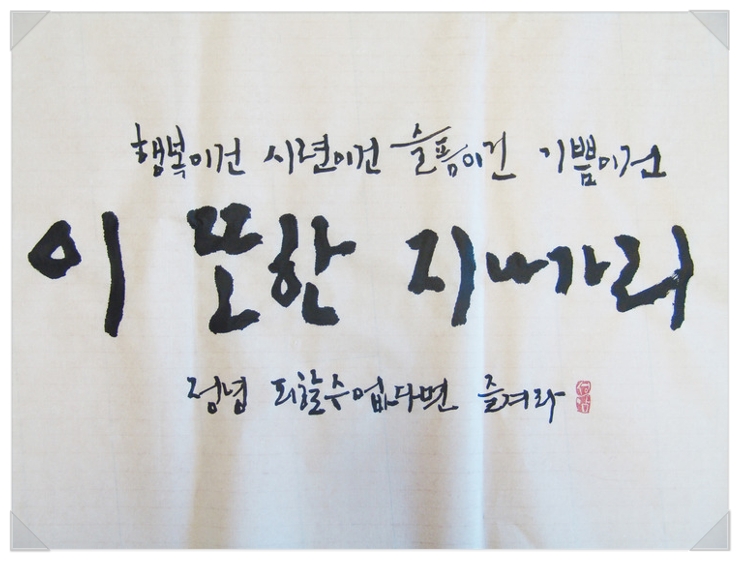 행복이건 시련이건 슬픔이건 기쁨이건
이 또한 지나가리
정녕 피할수 없다면 즐겨라